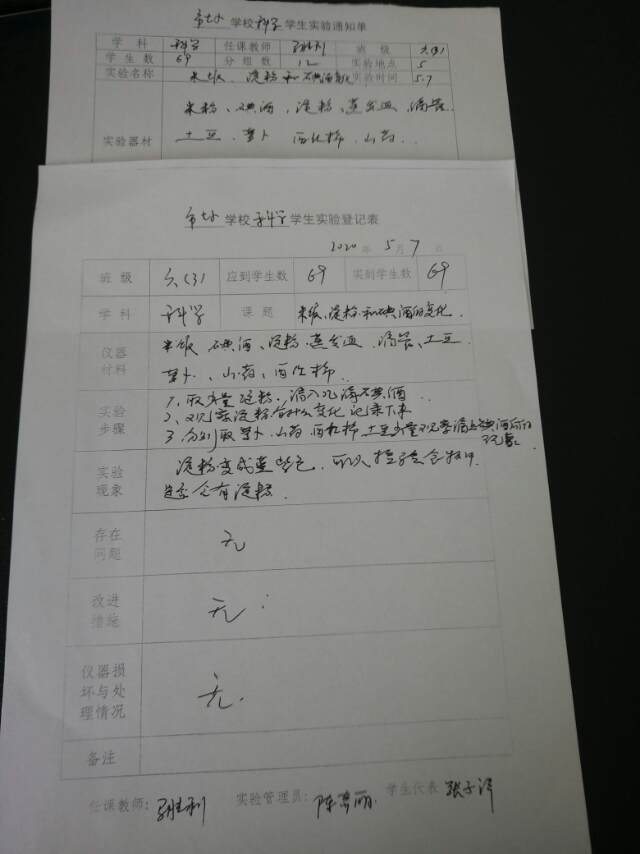 学校科学学生实验通知单
学科 科学 任课教师 班级 六(3)
学生数 69 分组数 12 实验地点 5
实验名称 米饭、淀粉和碘酒的变化 实验时间 5.7
实验器材 米粉、碘酒、淀粉、蒸发皿、滴管、
土豆、萝卜 西红柿、山药...
学校科学学生实验登记表
2020年5月7日
班级 六(3) 应到学生数 69 实到学生数 69
学科 科学 课题 米饭、淀粉和碘酒的变化
仪器材料 米饭、碘酒、淀粉、蒸发皿、滴管、土豆
萝卜、山药、西红柿
实验步骤 1、取少量淀粉,滴入几滴碘酒
2、观察淀粉有什么变化 记录下来
3、分别取萝卜、山药、西红柿、土豆少量观察滴上碘酒后的
现象
实验现象 淀粉变成蓝紫色,可以检验食物中
是否含有淀粉.
存在问题 无
改进措施 无
仪器损坏与处理情况 无.
备注
任课教师: 实验管理员: 学生代表: